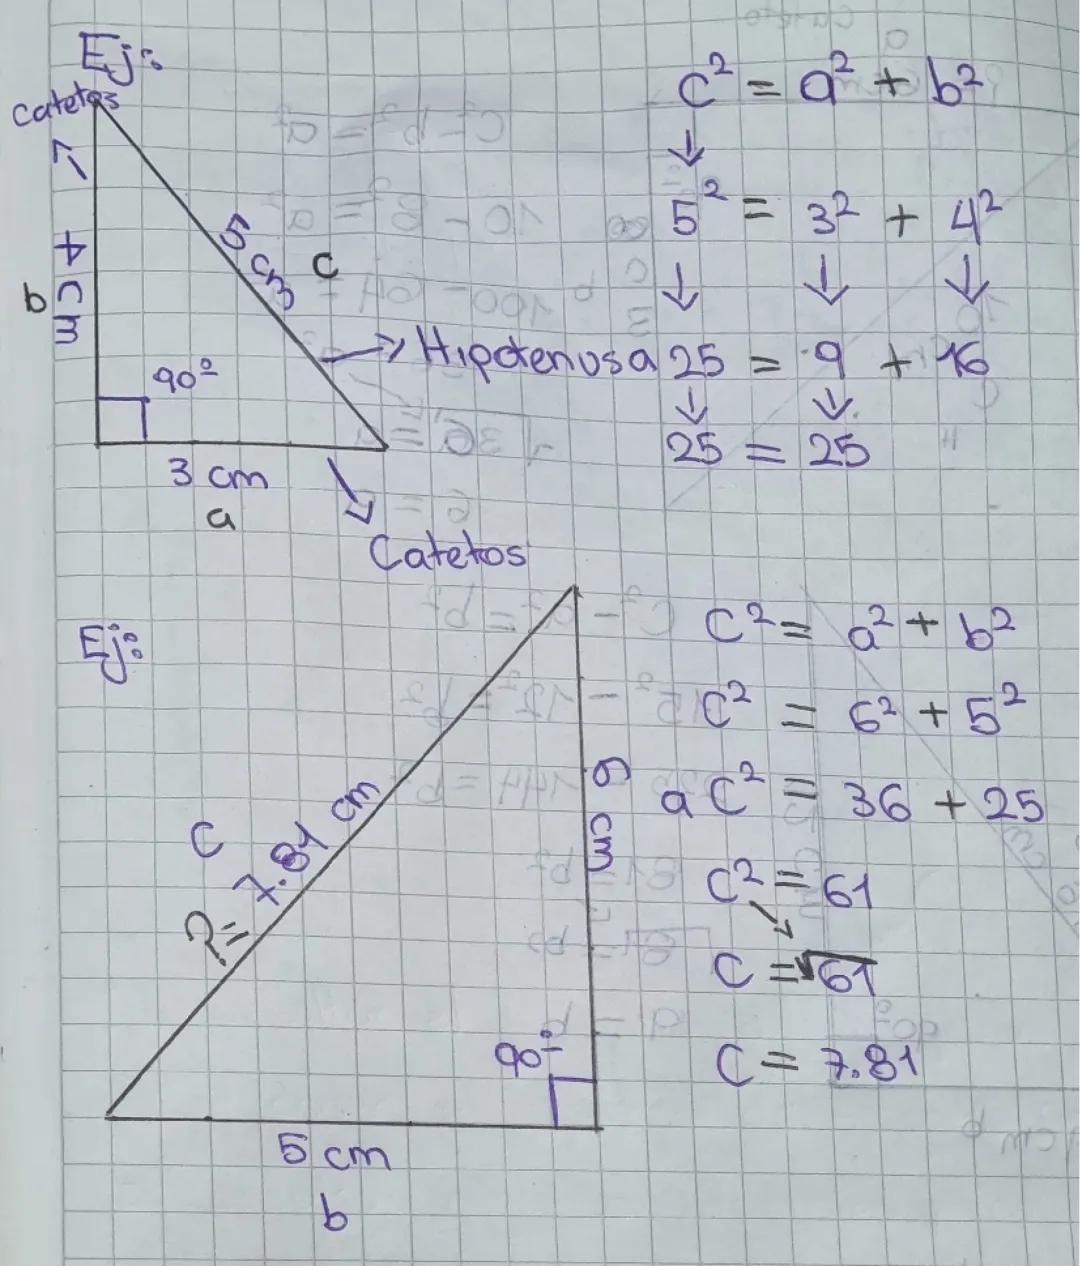 Ej:
Catetos
4 cm
b
5 cm
c
Hipotenusa
90º
3 cm
a
Catetos
c² = a² + b²
5² = 3² + 4²
25 = 9 + 16
25 = 25
Ej:
C
?= 7.81 cm
6 cm
a
90º
5 cm
b
C² = a² + b²
C² = 6² + 5²
C² = 36 + 25
C² = 61
C = √61
C = 7.81